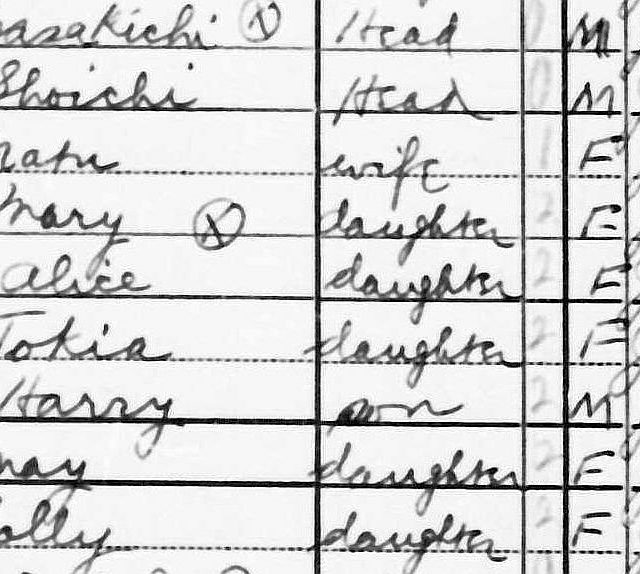 asakichi Ⓧ Head 1 M
Shoichi Head 1 M
wife 1 F
Mary Ⓧ daughter 2 F
Alice daughter 2 F
Tokia daughter 2 F
Harry son 2 M
may daughter 2 F
olly daughter 2 F